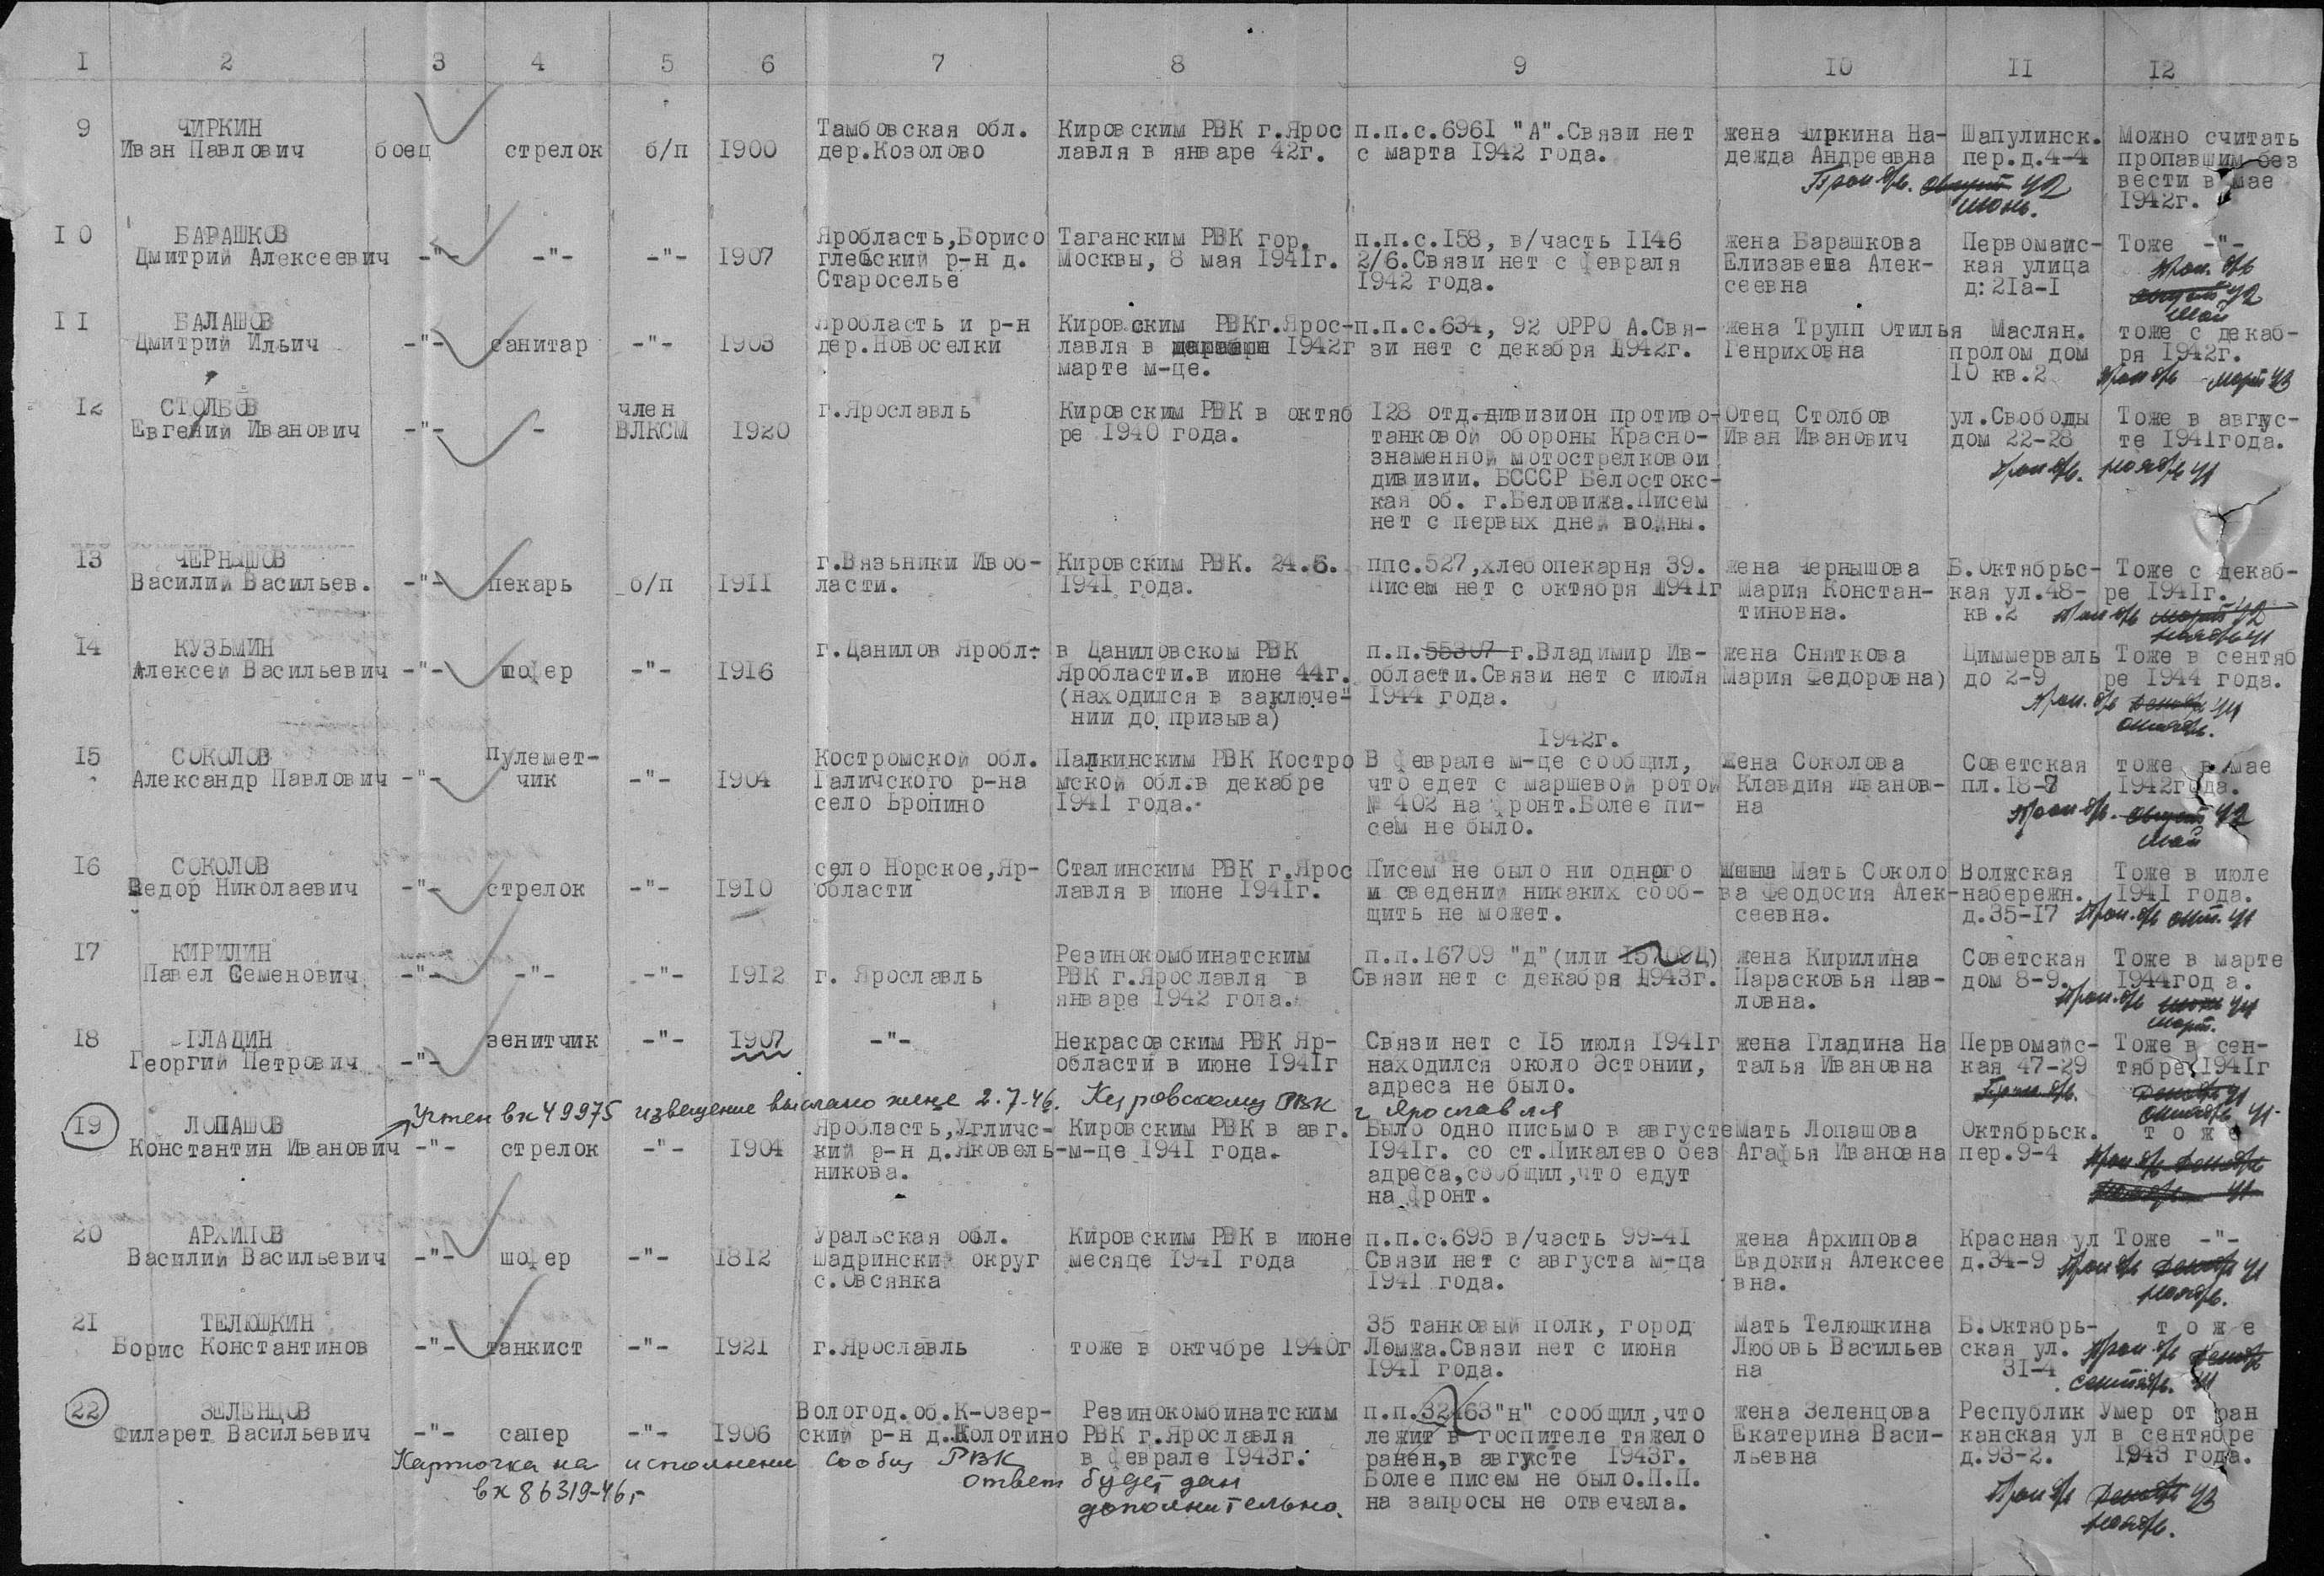 I 2 3 4 5 6 7 8 9 IO II I2
9 ЧИРКИН Иван Павлович боец стрелок б/п 1900
Тамбовская обл.
дер.Козолово
Кировским РВК г.Ярос
лавля в январе 42г.
п.п.с.696I "А".Связи нет
с марта 1942 года.
жена Чиркина На-
дежда Андреевна
Шапулинск.
пер.д.4-4
Можно считать
пропавшим без
вести в мае
1942г.
Проп. б/в. август 42
июнь.
I0 БАРАШКОВ
Дмитрий Алексеевич -"- -"- -"- 1907
Яробласть,Борисо
глебский р-н д.
Староселье
Таганским РВК гор.
Москвы, 8 мая 1941г.
п.п.с.I58, в/часть II46
2/6.Связи нет с февраля
1942 года.
жена Барашкова
Елизавеша Алек-
сеевна
Первомайс-
кая улица
д:2Iа-I
Тоже -"-
Проп. б/в
август 42
май
II БАЛАШОВ
Дмитрий Ильич -"- санитар -"- 1903
Яробласть и р-н
дер.Новоселки
Кировским РВКг.Ярос-
лавля в 1942г
марте м-це.
п.п.с.634, 92 ОРРО А.Свя-
зи нет с декабря 1942г.
жена Трупп Отилья
Генриховна
Маслян.
пролом дом
IO кв.2
тоже с декаб-
ря 1942г.
Проп б/в март 43
I2 СТОЛБОВ
Евгений Иванович -"- - член
ВЛКСМ 1920
г.Ярославль
Кировским РВК в октяб
ре 1940 года.
I28 отд.дивизион противо-
танковой обороны Красно-
знаменной мотострелковой
дивизии. БСССР Белостокс-
кая об. г.Беловижа.Писем
нет с первых дней войны.
Отец Столбов
Иван Иванович
ул.Свободы
дом 22-28
Тоже в авгус-
те 1941года.
Проп б/в. ноябрь 41
I3 ЧЕРНЫШОВ
Василий Васильев. -"- пекарь б/п 1911
г.Вязьники Ивоб-
ласти.
Кировским РВК. 24.6.
1941 года.
ппс.527,хлебопекарня 39.
Писем нет с октября 1941г
жена Чернышова
Мария Констан-
тиновна.
Б.Октябрьс-
кая ул.48-
кв.2
Тоже с декаб-
ре 1941г.
Проп б/в март 42
ноябрь 41
I4 КУЗЬМИН
Алексей Васильевич -"- шофер -"- 1916
г.Данилов Яробл:
в Даниловском РВК
Яробласти.в июне 44г.
(находился в заключе-
нии до призыва)
п.п.55307 г.Владимир Ив-
области.Связи нет с июля
1944 года.
жена Сняткова
Мария Федоровна)
Циммерваль
до 2-9
Тоже в сентяб
ре 1944 года.
Проп. б/в декабрь 44
октябрь.
I5 СОКОЛОВ
Александр Павлович -"- Пулемет-
чик -"- 1904
Костромской обл.
Галичского р-на
село Бропино
Палкинским РВК Костро
мской обл.в декабре
1941 года.
1942г.
В феврале м-це сообщил,
что едет с маршевой ротой
№ 402 на фронт.Более пи-
сем не было.
жена Соколова
Клавдия Иванов-
на
Советская
пл.18-8
тоже в мае
1942года.
Проп б/в. август 42
май
I6 СОКОЛОВ
Федор Николаевич -"- стрелок -"- 1910
село Норское,Яр-
области
Сталинским РВК г.Ярос
лавля в июне 1941г.
Писем не было ни одного
и сведений никаких сооб-
щить не может.
Мать Соколо
ва Феодосия Алек-
сеевна.
Волжская
набережн.
д.35-I7
Тоже в июле
1941 года.
Проп. б/в окт. 41
I7 КИРИЛИН
Павел Семенович -"- -"- -"- 1912
г. Ярославль
Резинокомбинатским
РВК г.Ярославля в
январе 1942 года.
п.п.16709 "д"(или
Связи нет с декабря 1943г.
жена Кирилина
Парасковья Пав-
ловна.
Советская
дом 8-9.
Тоже в марте
1944года.
Проп. б/в июнь 44
март.
I8 ГЛАДИН
Георгий Петрович -"- зенитчик -"- 1907
-"-
Некрасовским РВК Яр-
области в июне 1941г
Связи нет с 15 июля 1941г
находился около Эстонии,
адреса не было.
жена Гладина На
талья Ивановна
Первомайс-
кая 47-29
Тоже в сен-
тябре 1941г
Проп. б/в. декабрь 41
октябрь 41
Учтен вх 49975 извещение выслано жене 2.7.46. Кировскому РВК г Ярославля
I9 ЛОПАШОВ
Константин Иванович -"- стрелок -"- 1904
Яробласть,Угличс-
кий р-н д.Яковель-
никова.
Кировским РВК в авг.
м-це 1941 года.
Было одно письмо в августе
1941г. со ст.Пикалево без
адреса,сообщил,что едут
на фронт.
Мать Лопашова
Агафья Ивановна
Октябрьск.
пер.9-4
т о ж е
Проп б/в декабрь
41
20 АРХИПОВ
Василий Васильевич -"- шофер -"- 1812
Уральская обл.
Шадрински округ
с.Овсянка
Кировским РВК в июне
месяце 1941 года
п.п.с.695 в/часть 99-41
Связи нет с августа м-ца
1941 года.
жена Архипова
Евдокия Алексее
вна.
Красная ул
д.34-9
Тоже -"-
Проп б/в декабрь 41
ноябрь.
2I ТЕЛЮШКИН
Борис Константинов -"- танкист -"- 1921
г.Ярославль
тоже в октчбре 1940г
35 танковый полк, город
Ломжа.Связи нет с июня
1941 года.
Мать Телюшкина
Любовь Васильев
на
Б.Октябрь-
ская ул.
3I-4
т о ж е
Проп. б/в декабрь
сентябрь. 41
22 ЗЕЛЕНЦОВ
Филарет Васильевич -"- сапер -"- 1906
Вологод.об.К-Озер-
ский р-н д.Колотино
Резинокомбинатским
РВК г.Ярославля
в феврале 1943г.
п.п.32463"н" сообщил,что
лежит в госпителе тяжело
ранен,в августе 1943г.
Более писем не было.П.П.
на запросы не отвечала.
жена Зеленцова
Екатерина Васи-
льевна
Республик
канская ул
д.93-2.
Умер от ран
в сентябре
1943 года.
Проп б/в декабрь 43
ноябрь.
Карточка на исполнении сообщ РВК
вх 86319-46г
ответ будет дан
дополнительно.